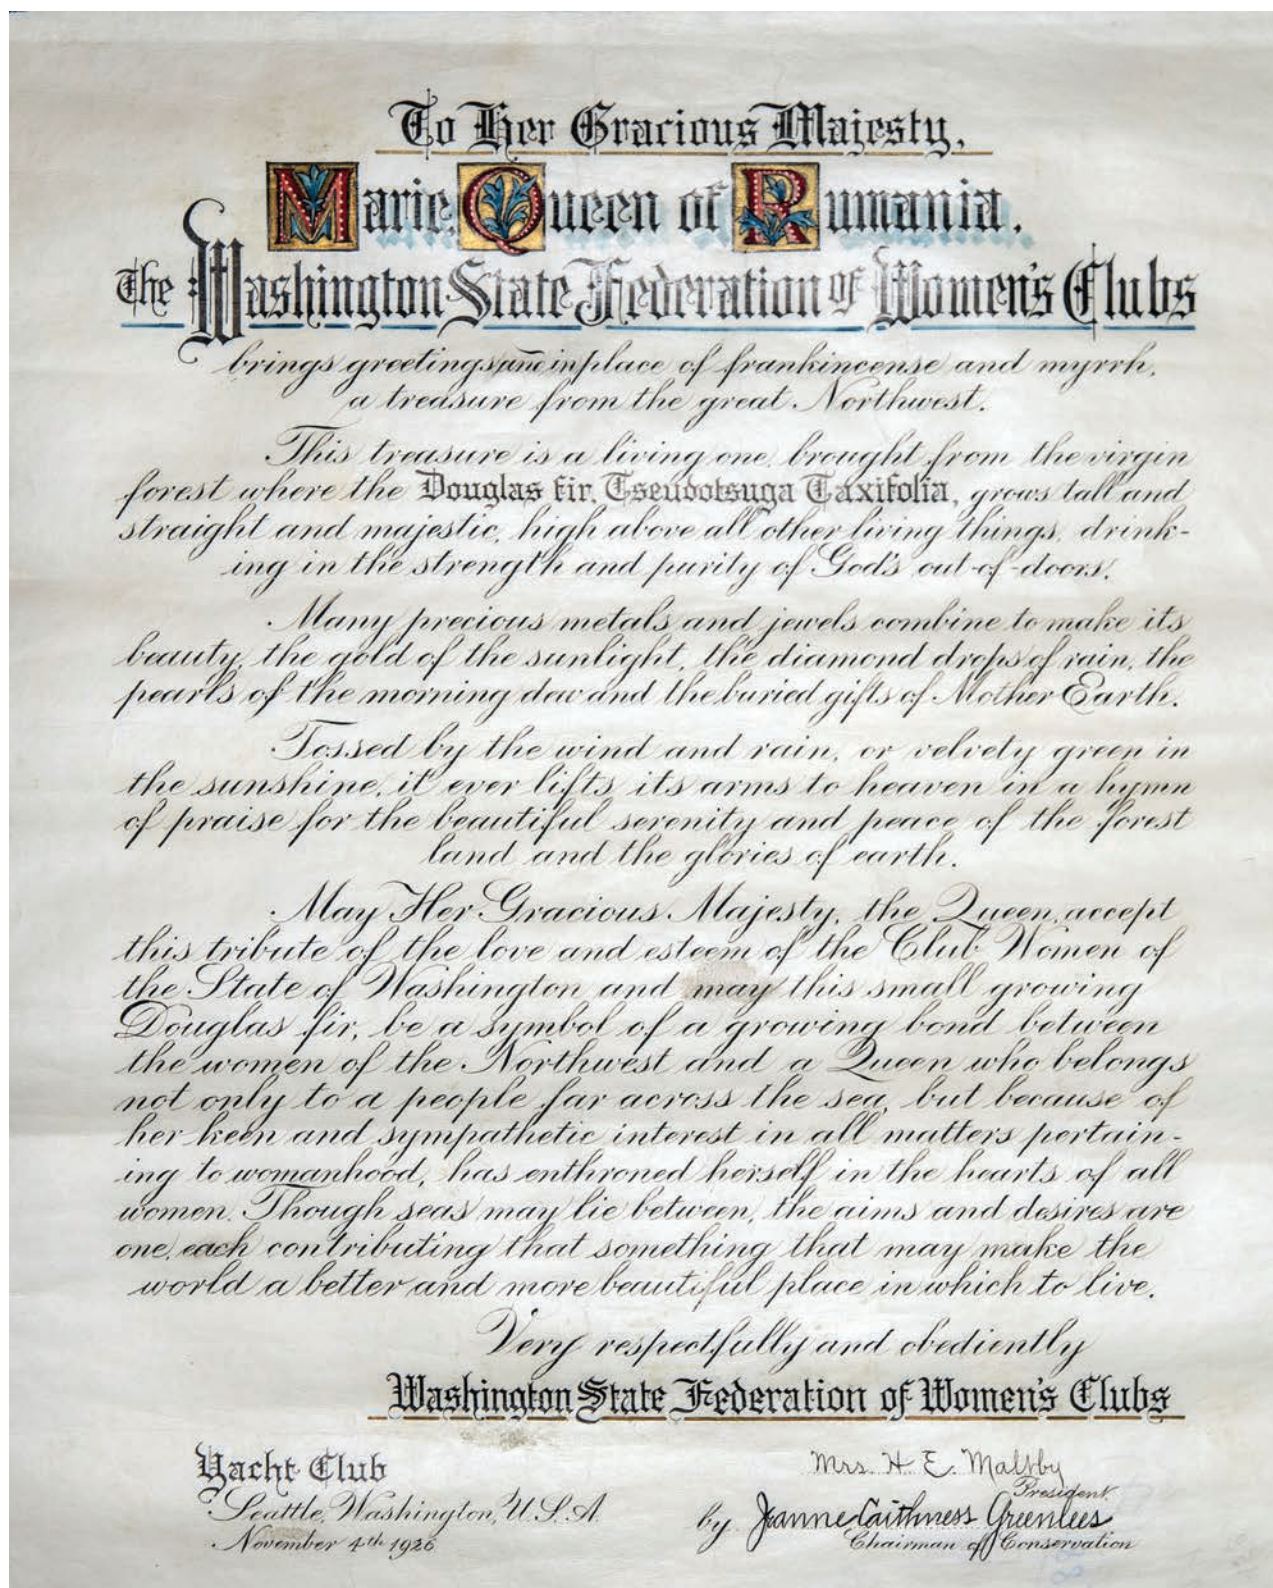 To Her Gracious Majesty,
Marie, Queen of Rumania.
The Washington State Federation of Women's Clubs
brings greetings and in place of frankincense and myrrh,
a treasure from the great Northwest.
This treasure is a living one, brought from the virgin
forest where the Douglas fir, Tseudotsuga Taxifolia, grows tall and
straight and majestic, high above all other living things, drink-
ing in the strength and purity of God's out-of-doors.
Many precious metals and jewels combine to make its
beauty, the gold of the sunlight, the diamond drops of rain, the
pearls of the morning dew and the buried gifts of Mother Earth.
Tossed by the wind and rain, or velvety green in
the sunshine, it ever lifts its arms to heaven in a hymn
of praise for the beautiful serenity and peace of the forest
land and the glories of earth.
May Her Gracious Majesty, the Queen, accept
this tribute of the love and esteem of the Club Women of
the State of Washington and may this small growing
Douglas fir, be a symbol of a growing bond between
the women of the Northwest and a Queen who belongs
not only to a people far across the sea, but because of
her keen and sympathetic interest in all matters pertain-
ing to womanhood, has enthroned herself in the hearts of all
women. Though seas may lie between, the aims and desires are
one, each contributing that something that may make the
world a better and more beautiful place in which to live.
Very respectfully and obediently
Washington State Federation of Women's Clubs
Yacht Club
Seattle, Washington, U.S.A.
November 4th 1926
Mrs. H. E. Maltby
President
by Jeanne Caithness Greenlees
Chairman of Conservation